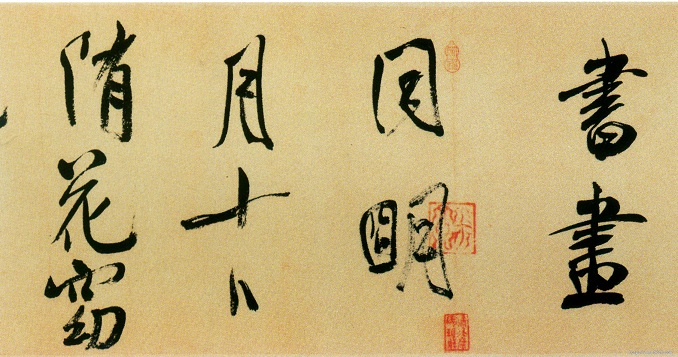 書畫
同明
月十八
隋花窈